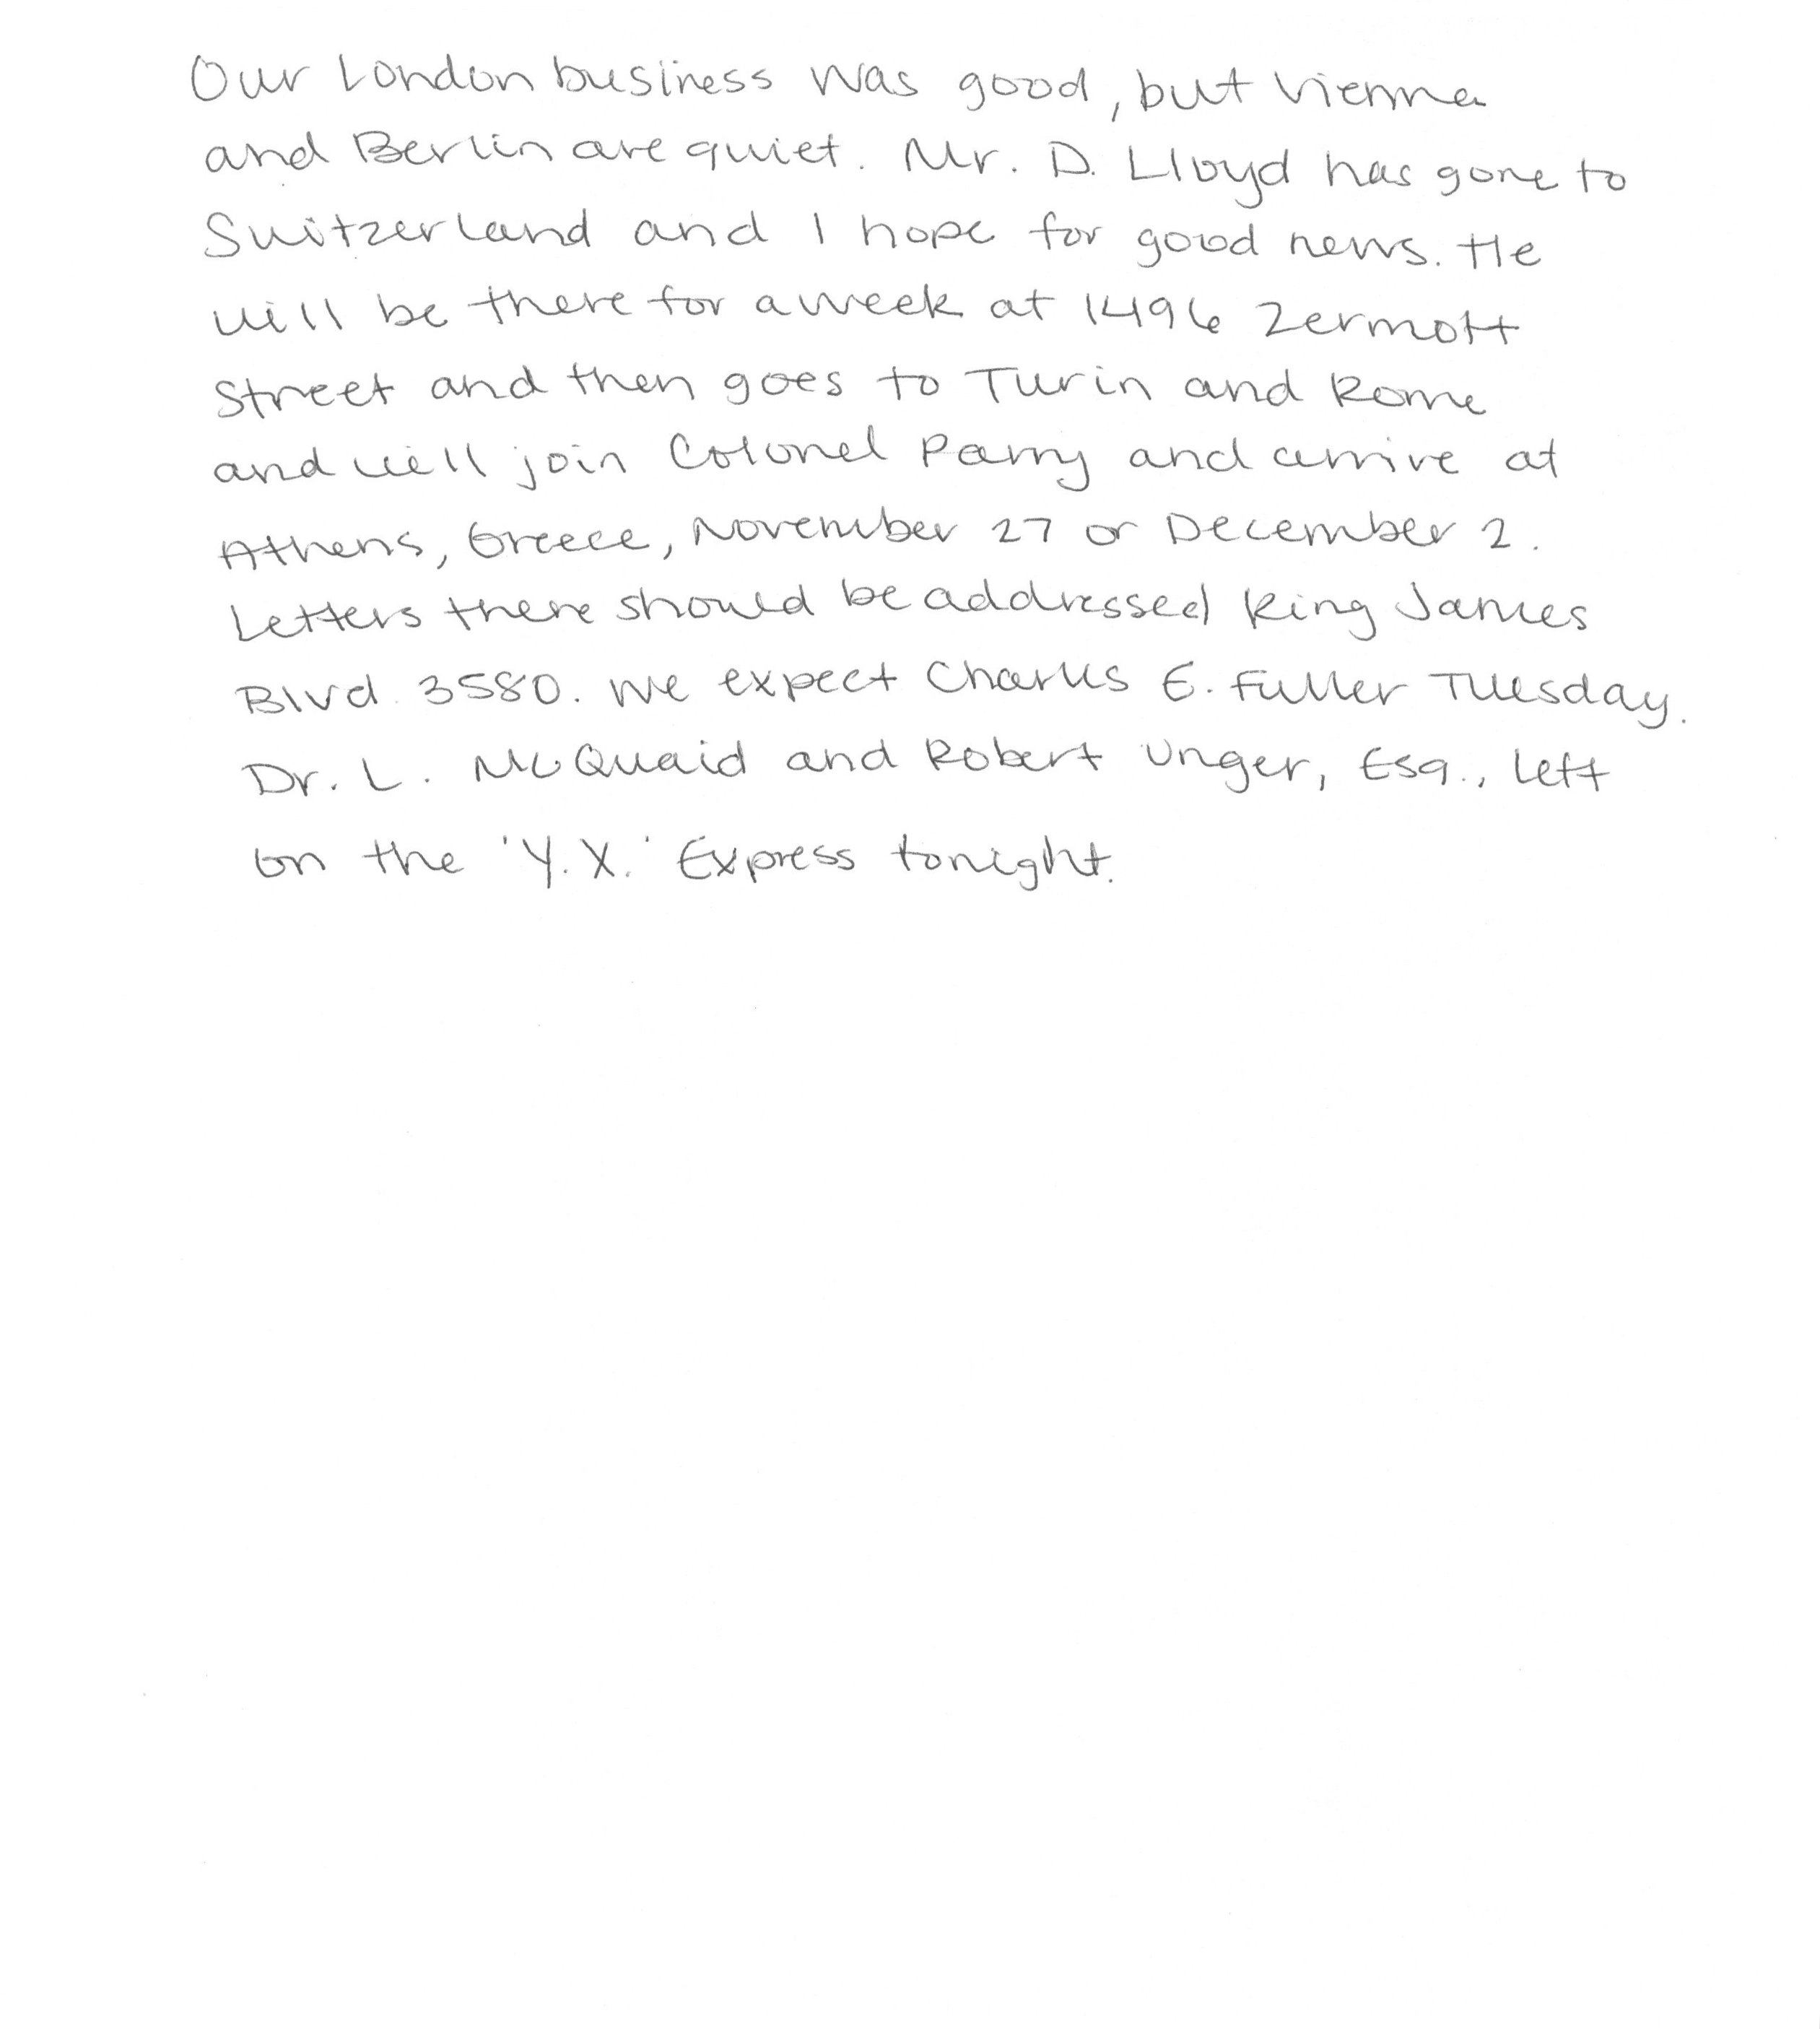 Our London business was good, but Vienna
and Berlin are quiet. Mr. D. Lloyd has gone to
Switzerland and I hope for good news. He
will be there for a week at 1496 Zermott
Street and then goes to Turin and Rome
and will join Colonel Parry and arrive at
Athens, Greece, November 27 or December 2.
Letters there should be addressed King James
Blvd. 3580. We expect Charles E. Fuller Tuesday.
Dr. L. McQuaid and Robert Unger, Esq., left
on the 'Y.X.' Express tonight.